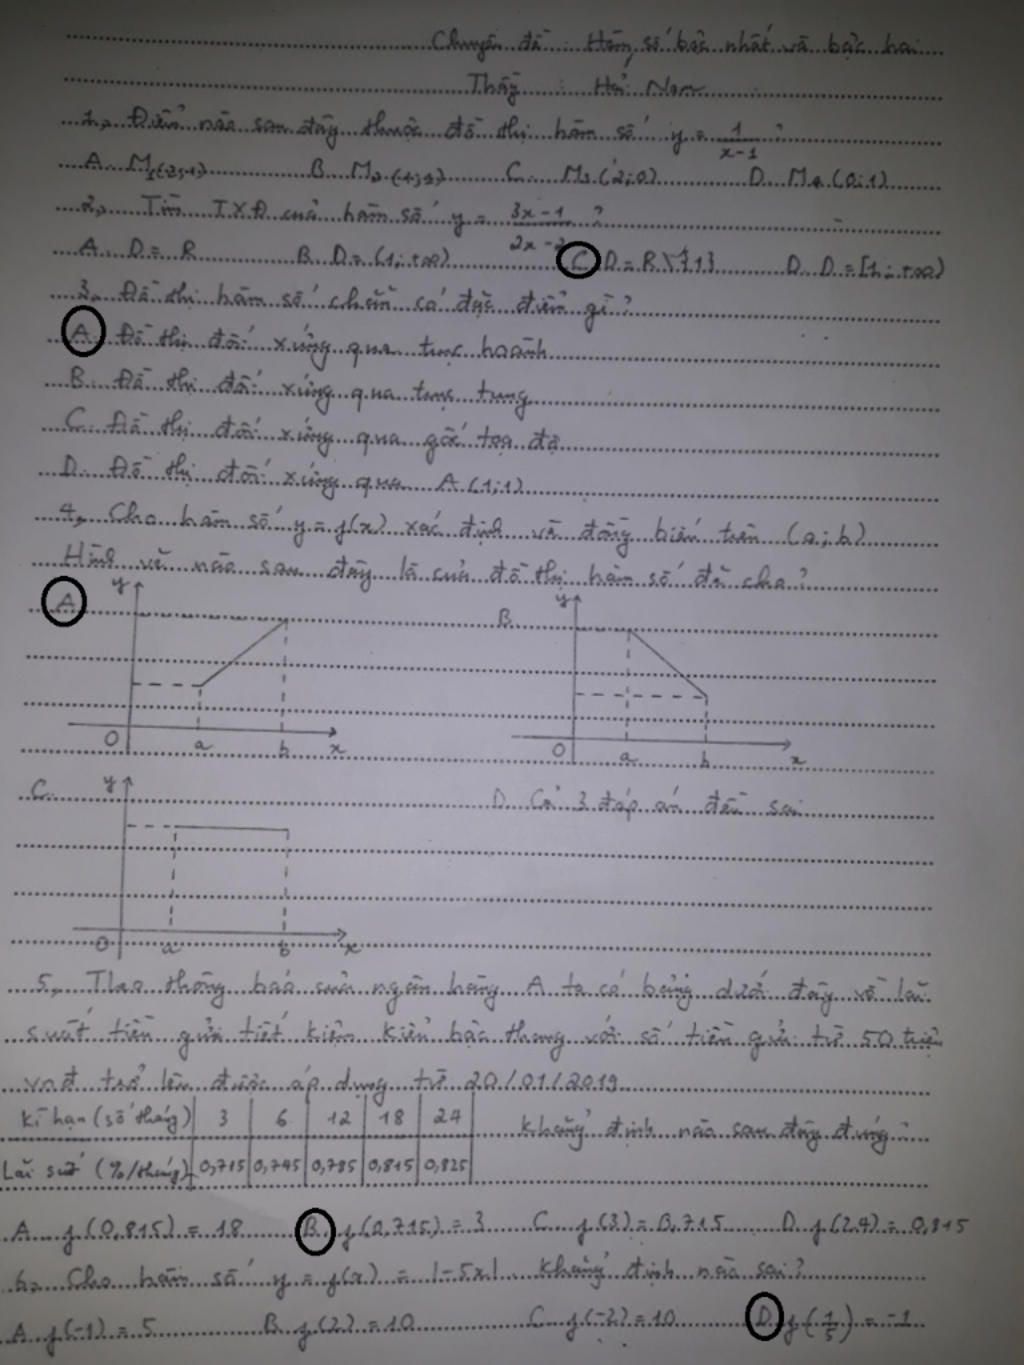 Chuyên đề : Hàm số bậc nhất và bậc hai
Thầy : Hải Nam
1, Điểm nào sau đây thuộc đồ thị hàm số y = 1/(x-1) ?
A. M1(2;1) B. M2(1;1) C. M3(2;0) D. M4(0;1)
2, Tìm TXĐ của hàm số y = (3x-1)/(2x-2) ?
A. D = R B. D = (1;+∞) C. D = R\{1} D. D = [1;+∞)
3, Đồ thị hàm số chẵn có đặc điểm gì?
A. Đồ thị đối xứng qua trục hoành
B. Đồ thị đối xứng qua trục tung
C. Đồ thị đối xứng qua gốc toạ độ
D. Đồ thị đối xứng qua A(1;1)
4, Cho hàm số y = f(x) xác định và đồng biến trên (a;b)
Hình vẽ nào sau đây là của đồ thị hàm số đã cho?
A y B. y
O a b x O a b x
C. y D. Cả 3 đáp án đều sai
O a b x
5, Theo thông báo của ngân hàng A ta có bảng dưới đây về lãi
suất tiền gửi tiết kiệm kiểu bậc thang với số tiền gửi từ 50 triệu
vnđ trở lên được áp dụng từ 20/01/2019
Kì hạn (số tháng) 3 6 12 18 24 Khẳng định nào sau đây đúng?
Lãi suất (%/tháng) 0,715 0,745 0,785 0,815 0,825
A. f(0,815) = 18 B. f(0,715) = 3 C. f(3) = 0,715 D. f(24) = 0,815
6, Cho hàm số y = f(x) = |-5x|. Khẳng định nào sai?
A. f(-1) = 5 B. f(2) = 10 C. f(-2) = 10 D. f(1/5) = -1